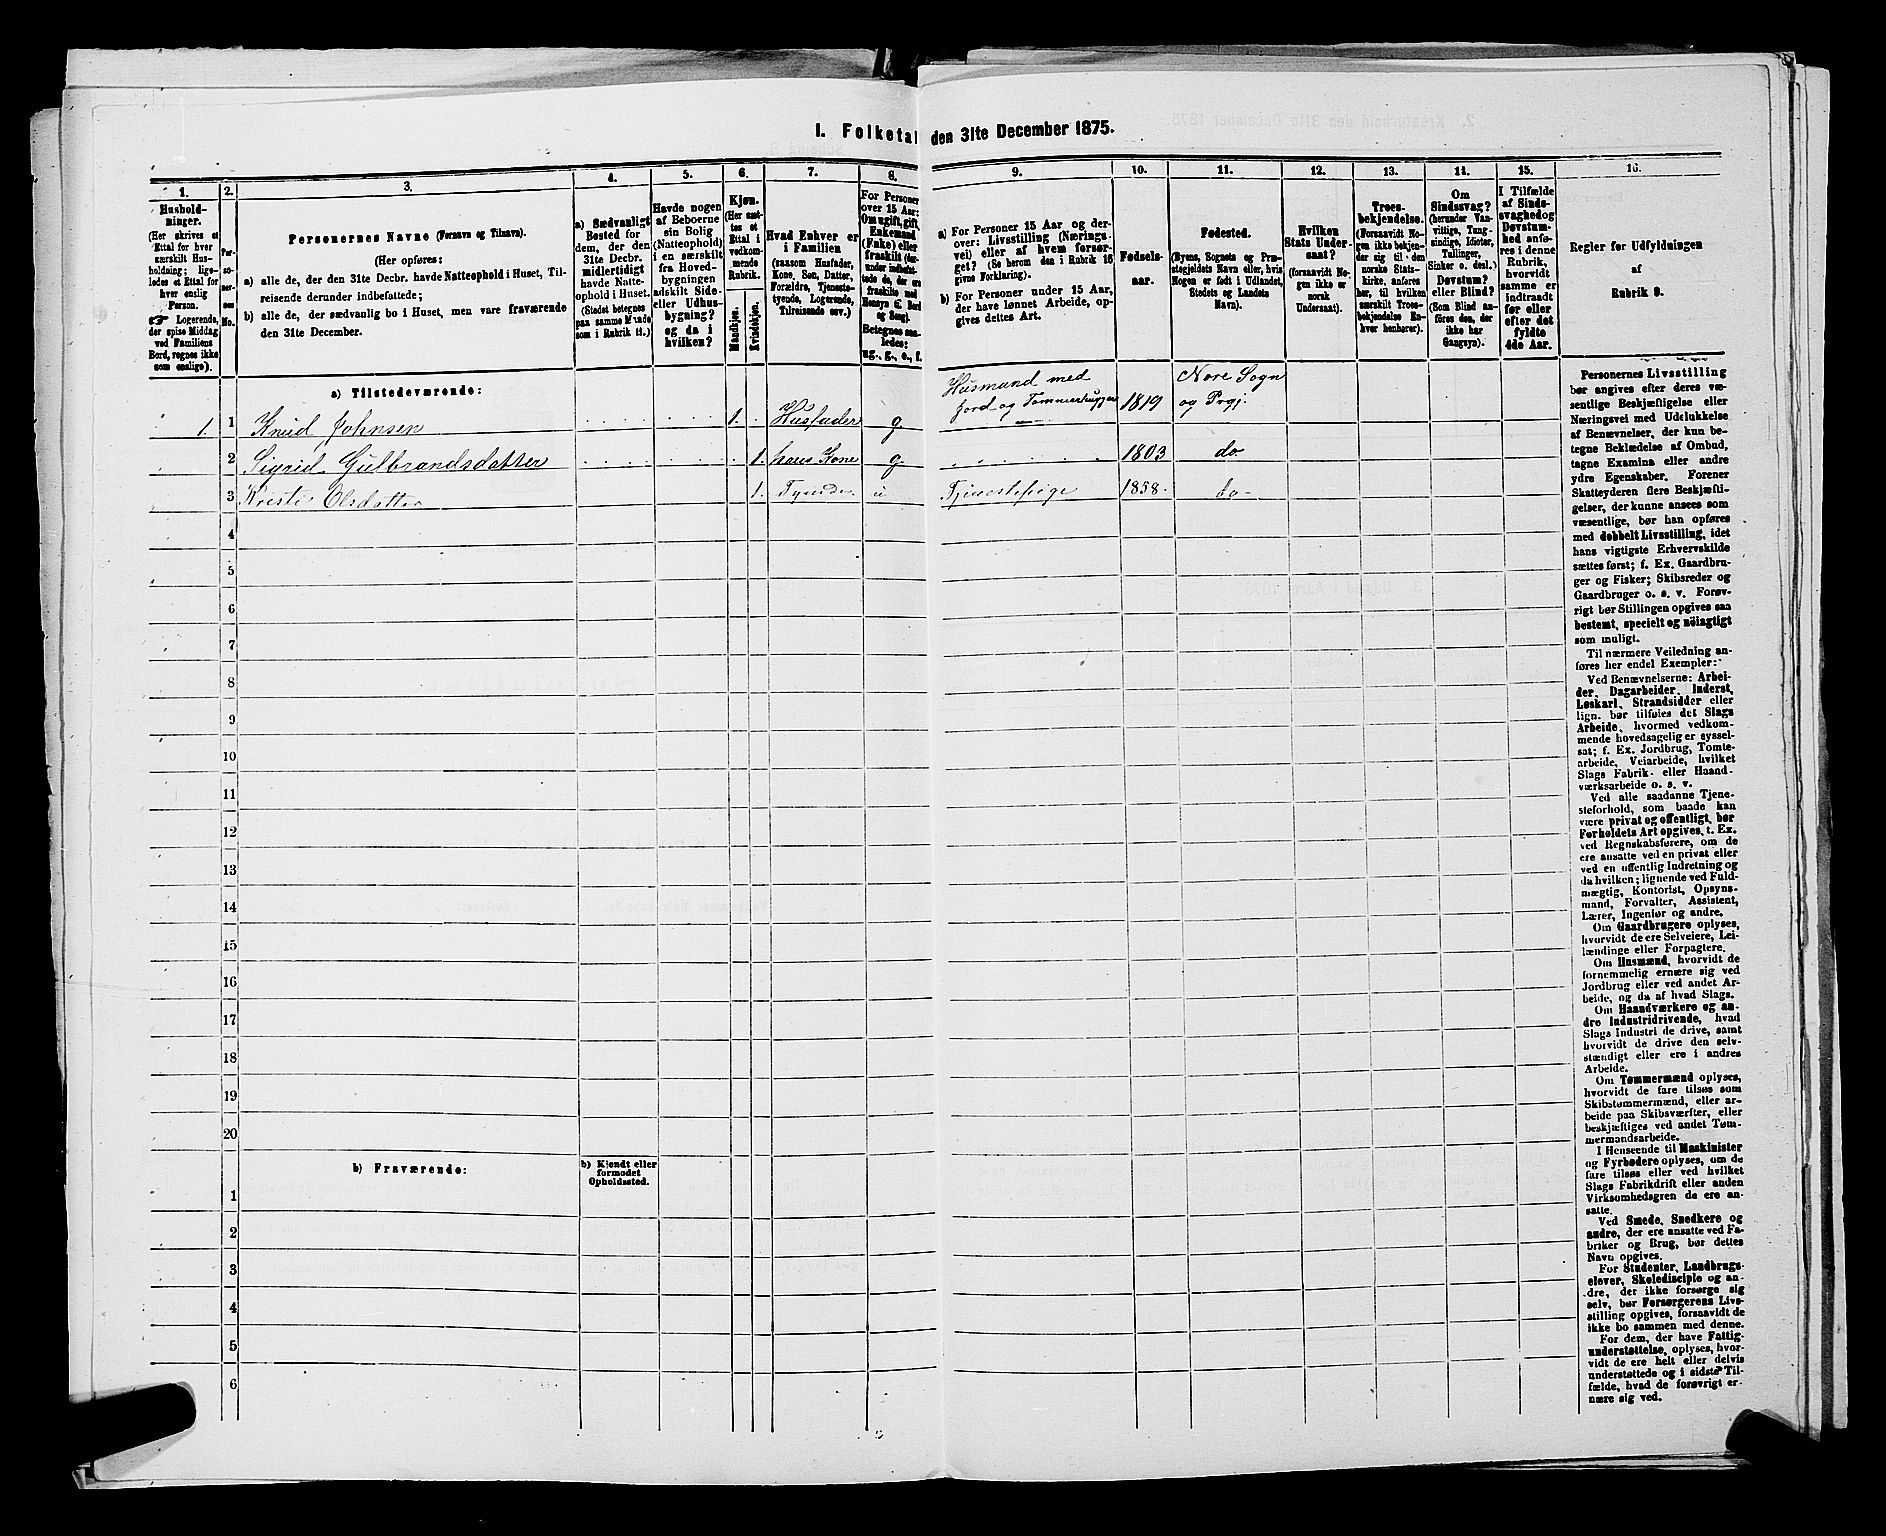 1. Folketal den 31te December 1875.
1.
2.
3.
4.
5.
6.
7.
8.
9.
10.
11.
12.
13.
14.
15.
16.
Hushold-
ninger.
(Her skrives et
Ettal for hver
særskilt Hus-
holdning; lige-
ledes et Ettal for
hver enslig
Person.
☞ Logerende,
der spise Middag
ved Familiens
Bord, regnes ikke
som enslige).
Per-
so-
ner-
nes
No.
Personernes Navne (Fornavn og Tilnavn).
(Her opføres:
a) alle de, der den 31te Decbr. havde Natteophold i Huset, Til-
reisende derunder indbefattede;
b) alle de, der sædvanlig bo i Huset, men vare fraværende
den 31te December.
a) Sædvanligt
Bosted for
dem, der den
31te Decbr.
midlertidigt
havde Natte-
ophold i Huset.
(Stedet betegnes
paa samme Maade
som i Rubrik 11.)
Havde nogen
af Beboerne
sin Bolig
(Natteophold)
i en særskilt
fra Hoved-
bygningen
adskilt Side-
eller Udhus-
bygning?
og da i
hvilken?
Kjøn.
(Her sæt-
tes et
Ettal i
vedkom-
mende
Rubrik.
Mandkjøn.
Kvindekjøn.
Hvad Enhver er
i Familien
(saasom Husfader,
Kone, Søn, Datter,
Forældre, Tjeneste-
tyende, Logerende,
Tilreisende osv.)
For Personer
over 15 Aar:
Om ugift, gift,
Enkemand
(Enke) eller
fraskilt (der-
under indbefat-
tede de, der ere
fraskilte med
Hensyn til Bord
og Seng).
Betegnes saa-
ledes:
ug., g., e., f.
a) For Personer 15 Aar og der-
over: Livsstilling (Nærings-
vei) eller af hvem forsør-
get? (Se herom den i Rubrik 16
givne Forklaring).
b) For Personer under 15 Aar,
der have lønnet Arbeide, op-
gives dettes Art.
Fødsels-
aar.
Fødested.
(Byens, Sognets og Præ-
stegjeldets Navn eller, hvis
Nogen er født i Udlandet,
Stedets og Landets
Navn).
Hvilken
Stats Under-
saat?
(forsaavidt No-
gen ikke er
norsk
Undersaat).
Troes-
bekjendelse.
(Forsaavidt No-
gen ikke bekjen-
der sig til den
norske Stats-
kirke, anføres
her, til hvilken
særskilt Troes-
bekjendelse En-
hver henhører).
Om
Sindssvag?
(herunder Van-
vittige, Tung-
sindige, Idioter,
Tullinger,
Sinker o. desl.)
Døvstum?
eller Blind?
(Som Blind an-
føres den, der
ikke har
Gangsyn).
I Tilfælde
af Sinds-
svaghed og
Døvstum-
hed anfø-
res i denne
Rubrik,
hvorvidt
samme er
indtraadt
før eller
efter det
fyldte
4de Aar.
Regler for Udfyldningen
af
Rubrik 9.
a) Tilstedeværende:
1. 1 Knud Johnsen 1. Husfader g Husmand med
Jord og Tømmerhugger 1819 Nore Sogn
og Prgj.
2 Sigrid Gulbrandsdatter 1. hans Kone g 1803 do
3 Kristi Olsdatter 1. Tyende u Tjenestepige 1858. do-
4
5
6
7
8
9
10
11
12
13
14
15
16
17
18
19
20
b) Fraværende:
b) Kjendt eller
formodet
Opholdssted.
1
2
3
4
5
6
Personernes Livsstilling
bør angives efter deres væ-
sentlige Beskjæftigelse eller
Næringsvei med Udelukkelse
af Benævnelser, der kun be-
tegne Beklædelse af Ombud,
tagne Examina eller andre
ydre Egenskaber. Forener
Skatteyderen flere Beskjæfti-
gelser, der kunne ansees som
væsentlige, bør han opføres
med dobbelt Livsstilling, idet
hans vigtigste Erhvervskilde
sættes først; f. Ex. Gaardbru-
ger og Fisker; Skibsreder og
Gaardbruger o. s. v. Forøv-
rigt bør Stillingen opgives saa
bestemt, specielt og nøiagtigt
som muligt.
Til nærmere Veiledning an-
føres her endel Exempler:
Ved Benævnelserne: Arbei-
der, Dagarbeider, Inderst,
Løskarl, Strandsidder eller
lign. bør tilføies det Slags
Arbeide, hvormed vedkom-
mende hovedsagelig er syssel-
sat; f. Ex. Jordbrug, Tomte-
arbeide, Veiarbeide, hvilket
Slags Fabrik- eller Haand-
værksarbeide o. s. v.
Ved alle saadanne Tjene-
steforhold, som baade kan
være privat og offentligt, bør
Forholdets Art opgives, t. Ex.
ved Regnskabsførere, om de
ere ansatte ved en privat eller
ved en offentlig Indretning og
da hvilken; lignende ved Fuld-
mægtig, Kontorist, Opsyns-
mand, Forvalter, Assistent,
Lærer, Ingeniør og andre.
Om Gaardbrugere oplyses,
hvorvidt de ere Selveiere, Lei-
lændinge eller Forpagtere.
Om Husmænd, hvorvidt de
fornemmelig ernære sig ved
Jordbrug eller ved andet Ar-
beide, og da af hvad Slags.
Om Haandværkere og an-
dre Industridrivende, hvad
Slags Industri de drive, samt
hvorvidt de drive den selv-
stændigt eller ere i andres
Arbeide.
Om Tømmermænd oplyses,
hvorvidt de fare tilsøs som
Skibstømmermænd, eller ar-
beide paa Skibsværfter, eller
beskjæftiges ved andet Tøm-
mermandsarbeide.
I Henseende til Maskinister
og Fyrbødere oplyses, om de
fare tilsøs eller ved hvilket
Slags Fabrikdrift eller anden
Virksomhedsgren de ere an-
satte.
Ved Smede, Snedkere og
andre, der ere ansatte ved Fa-
briker og Brug, bør dettes
Navn opgives.
For Studenter, Landbrugs-
elever, Skoledisciple og an-
dre, der ikke forsørge sig
selv, bør Forsørgerens Livs-
stilling opgives, forsaavidt de
ikke bo sammen med denne.
For dem, der have Fattig-
understøttelse, oplyses, hvor-
vidt de ere helt eller delvis
understøttede og i sidste Til-
fælde, hvad de forøvrigt er-
nære sig ved.